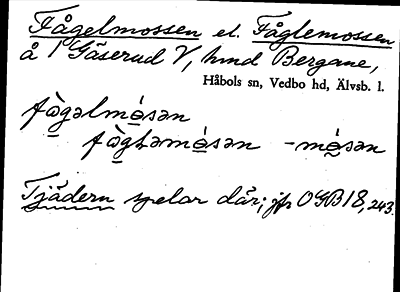 Fågelmossen el. Fåglemossen
å 1 Gäserud V, hmd Bergane,
Håbols sn, Vedbo hd, Älvsb. l.
fɷ̀gəlmɷ́sən
fɷ̀gləmɷ́sən -mɷ́sən
Tjädern spelar där; jfr OGB 18, 243.